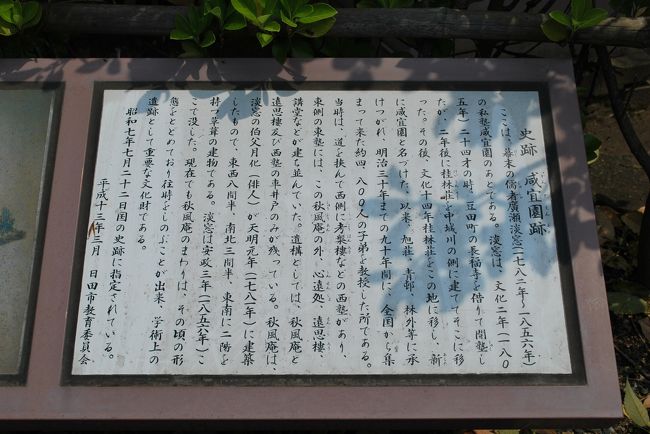 史跡 咸宜園跡
ここは、幕末の儒者廣瀬淡窓(一七八二年〜一八五六年)
の私塾咸宜園のあとである。淡窓は、文化二年(一八〇
五年)二十四才の時、豆田町の長福寺を借りて開塾し
たが、二年後に桂林荘を中城川の側に建ててそこに移
った。その後、文化十四年桂林荘をこの地に移し、新
に咸宜園と名づけた。以来、旭荘、青邨、林外等に承
けつがれ、明治三十年までの九十年間に、全国から集
まって来た約四、八〇〇人の子弟を教授した所である。
当時は、道を挟んで西側に考槃楼などの西塾があり、
東側の東塾には、この秋風庵の外、心遠処、遠思楼
講堂などが建ち並んでいた。遺構としては、秋風庵と
遠思楼及び西塾の車井戸のみが残っている。秋風庵は、
淡窓の伯父月化(俳人)が天明元年(一七八一年)に建築
したもので、東西八間半、南北三間半、東南に二陽を
持つ草葺の建物である。淡窓は安政三年(一八五六年)こ
こで没した。現在でも秋風庵のまわりは、その頃の形
態をとどめており往時をしのぶことが出来、学術上の
遺跡として重要な文化財である。
昭和七年七月二十二日国の史跡に指定されている。
平成十三年三月 日田市教育委員会